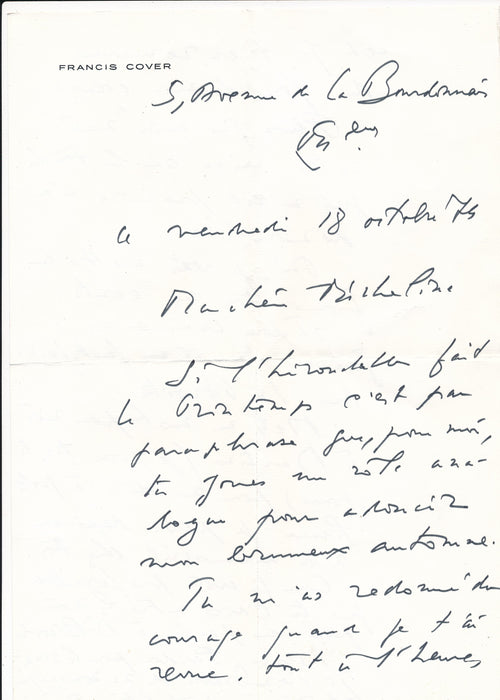 FRANCIS COVER
5, Avenue de La Bourdonnais
le vendredi 18 octobre 74
Ma chère Micheline
Si l'hirondelle fait
le Printemps c'est par
paraphrase que, pour moi,
tu joues un rôle ana-
logue pour adoucir
mon brumeux automne.
Tu m'as redonné du
courage quand je t'ai
revue. tout à l'heure